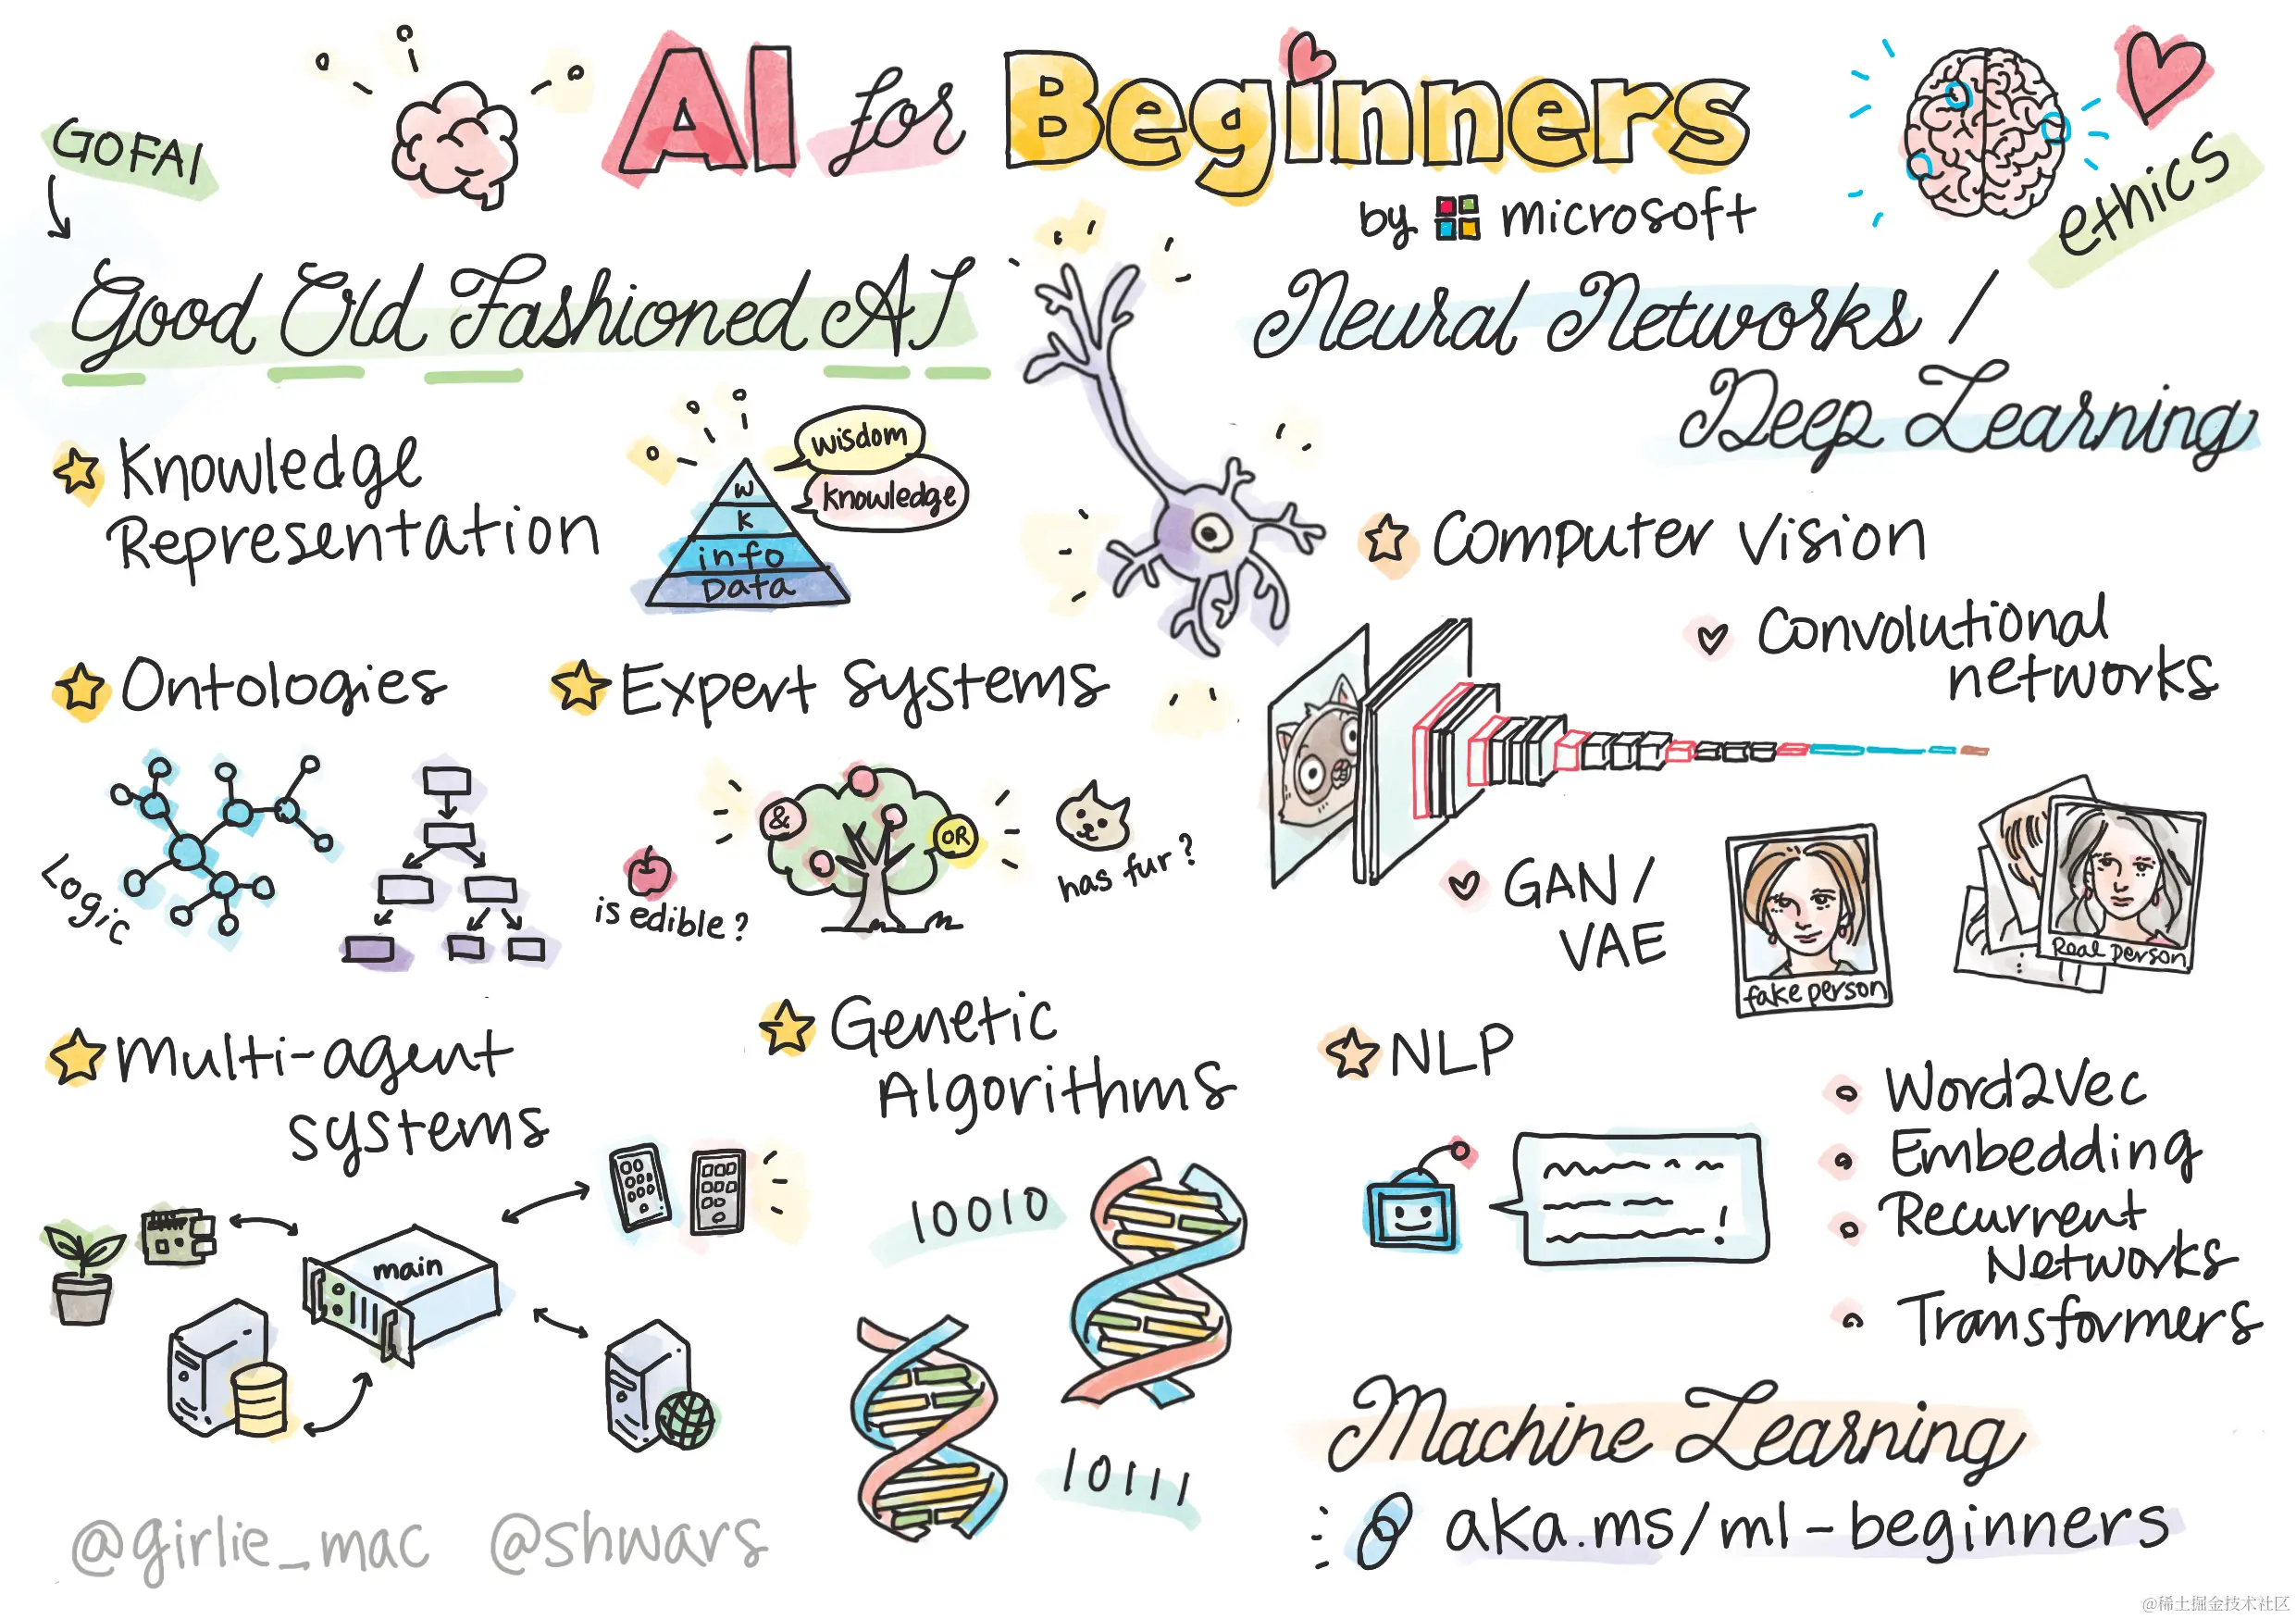 AI for Beginners
by microsoft
GOFAI
Good Old Fashioned AI
Knowledge
Representation
wisdom
knowledge
W
K
info
Data
Ontologies
Logic
Expert systems
&
OR
is edible?
has fur?
Multi-agent
systems
main
Genetic
Algorithms
10010
10111
@girlie_mac @shwars
ethics
Neural Networks /
Deep Learning
Computer vision
Convolutional
networks
GAN /
VAE
fake person
Real person
NLP
!
Word2Vec
Embedding
Recurrent
Networks
Transformers
Machine Learning
aka.ms/ml-beginners
@稀土掘金技术社区